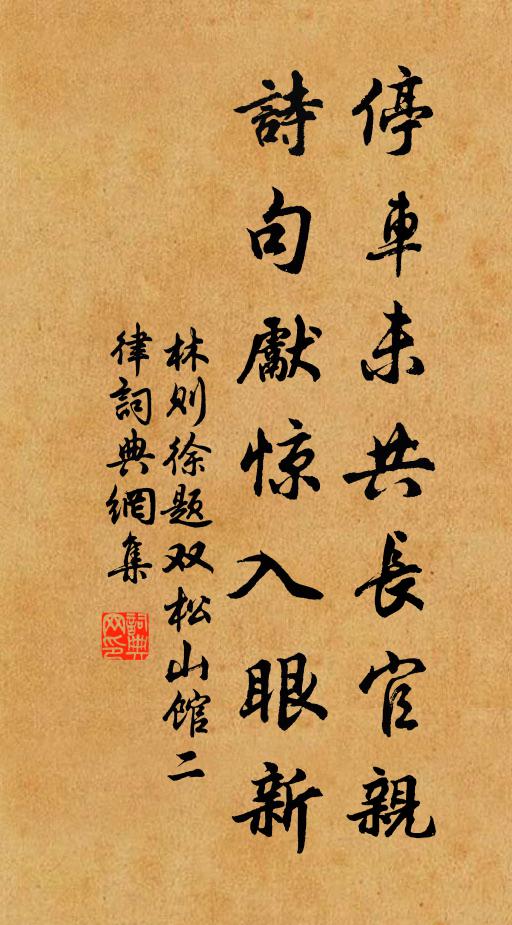 停車未共長官親
詩句獻惊入眼新
林则徐题双松山馆二
律詞典網集
詞典
网印